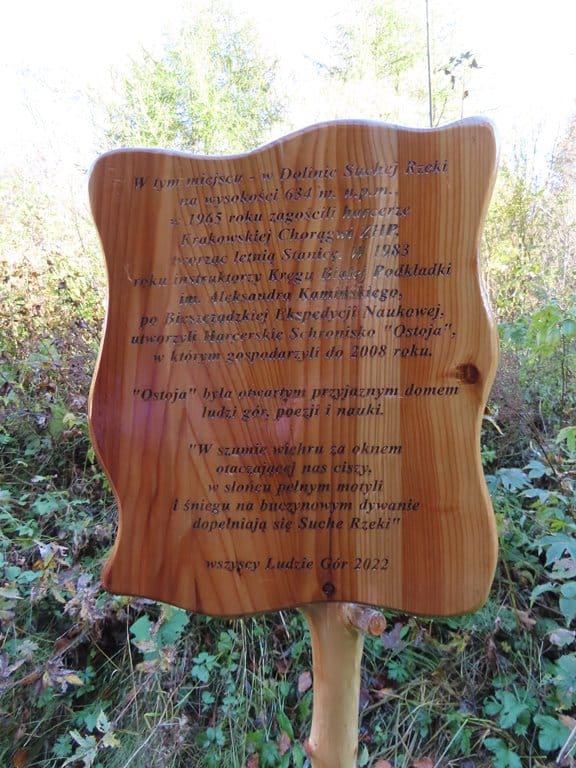 W tym miejscu - w Dolinie Suchej Rzeki
na wysokości 634 m. n.p.m.,
w 1965 roku zagościli harcerze
Krakowskiej Chorągwi ZHP,
tworząc letnią Stanicę. W 1983
roku instruktorzy Kręgu Białej Podkładki
im. Aleksandra Kamińskiego,
po Bieszczadzkiej Ekspedycji Naukowej,
utworzyli Harcerskie Schronisko "Ostoja",
w którym gospodarzyli do 2008 roku.
"Ostoja" była otwartym przyjaznym domem
ludzi gór, poezji i nauki.
"W szumie wichru za oknem
otaczającej nas ciszy,
w słońcu pełnym motyli
i śniegu na buczynowym dywanie
dopełniają się Suche Rzeki"
wszyscy Ludzie Gór 2022